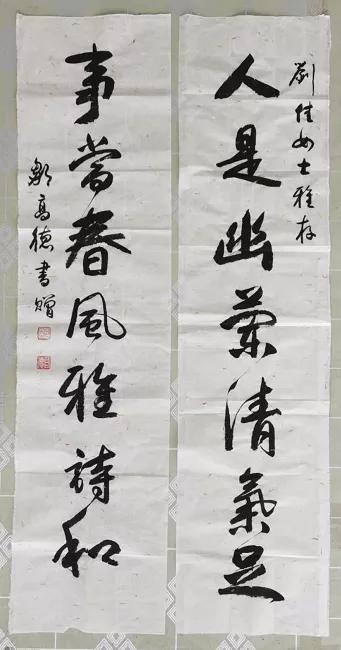 劉佳女士雅存
人是幽蘭清氣足
事當春風雅詩和
鄭高德書贈